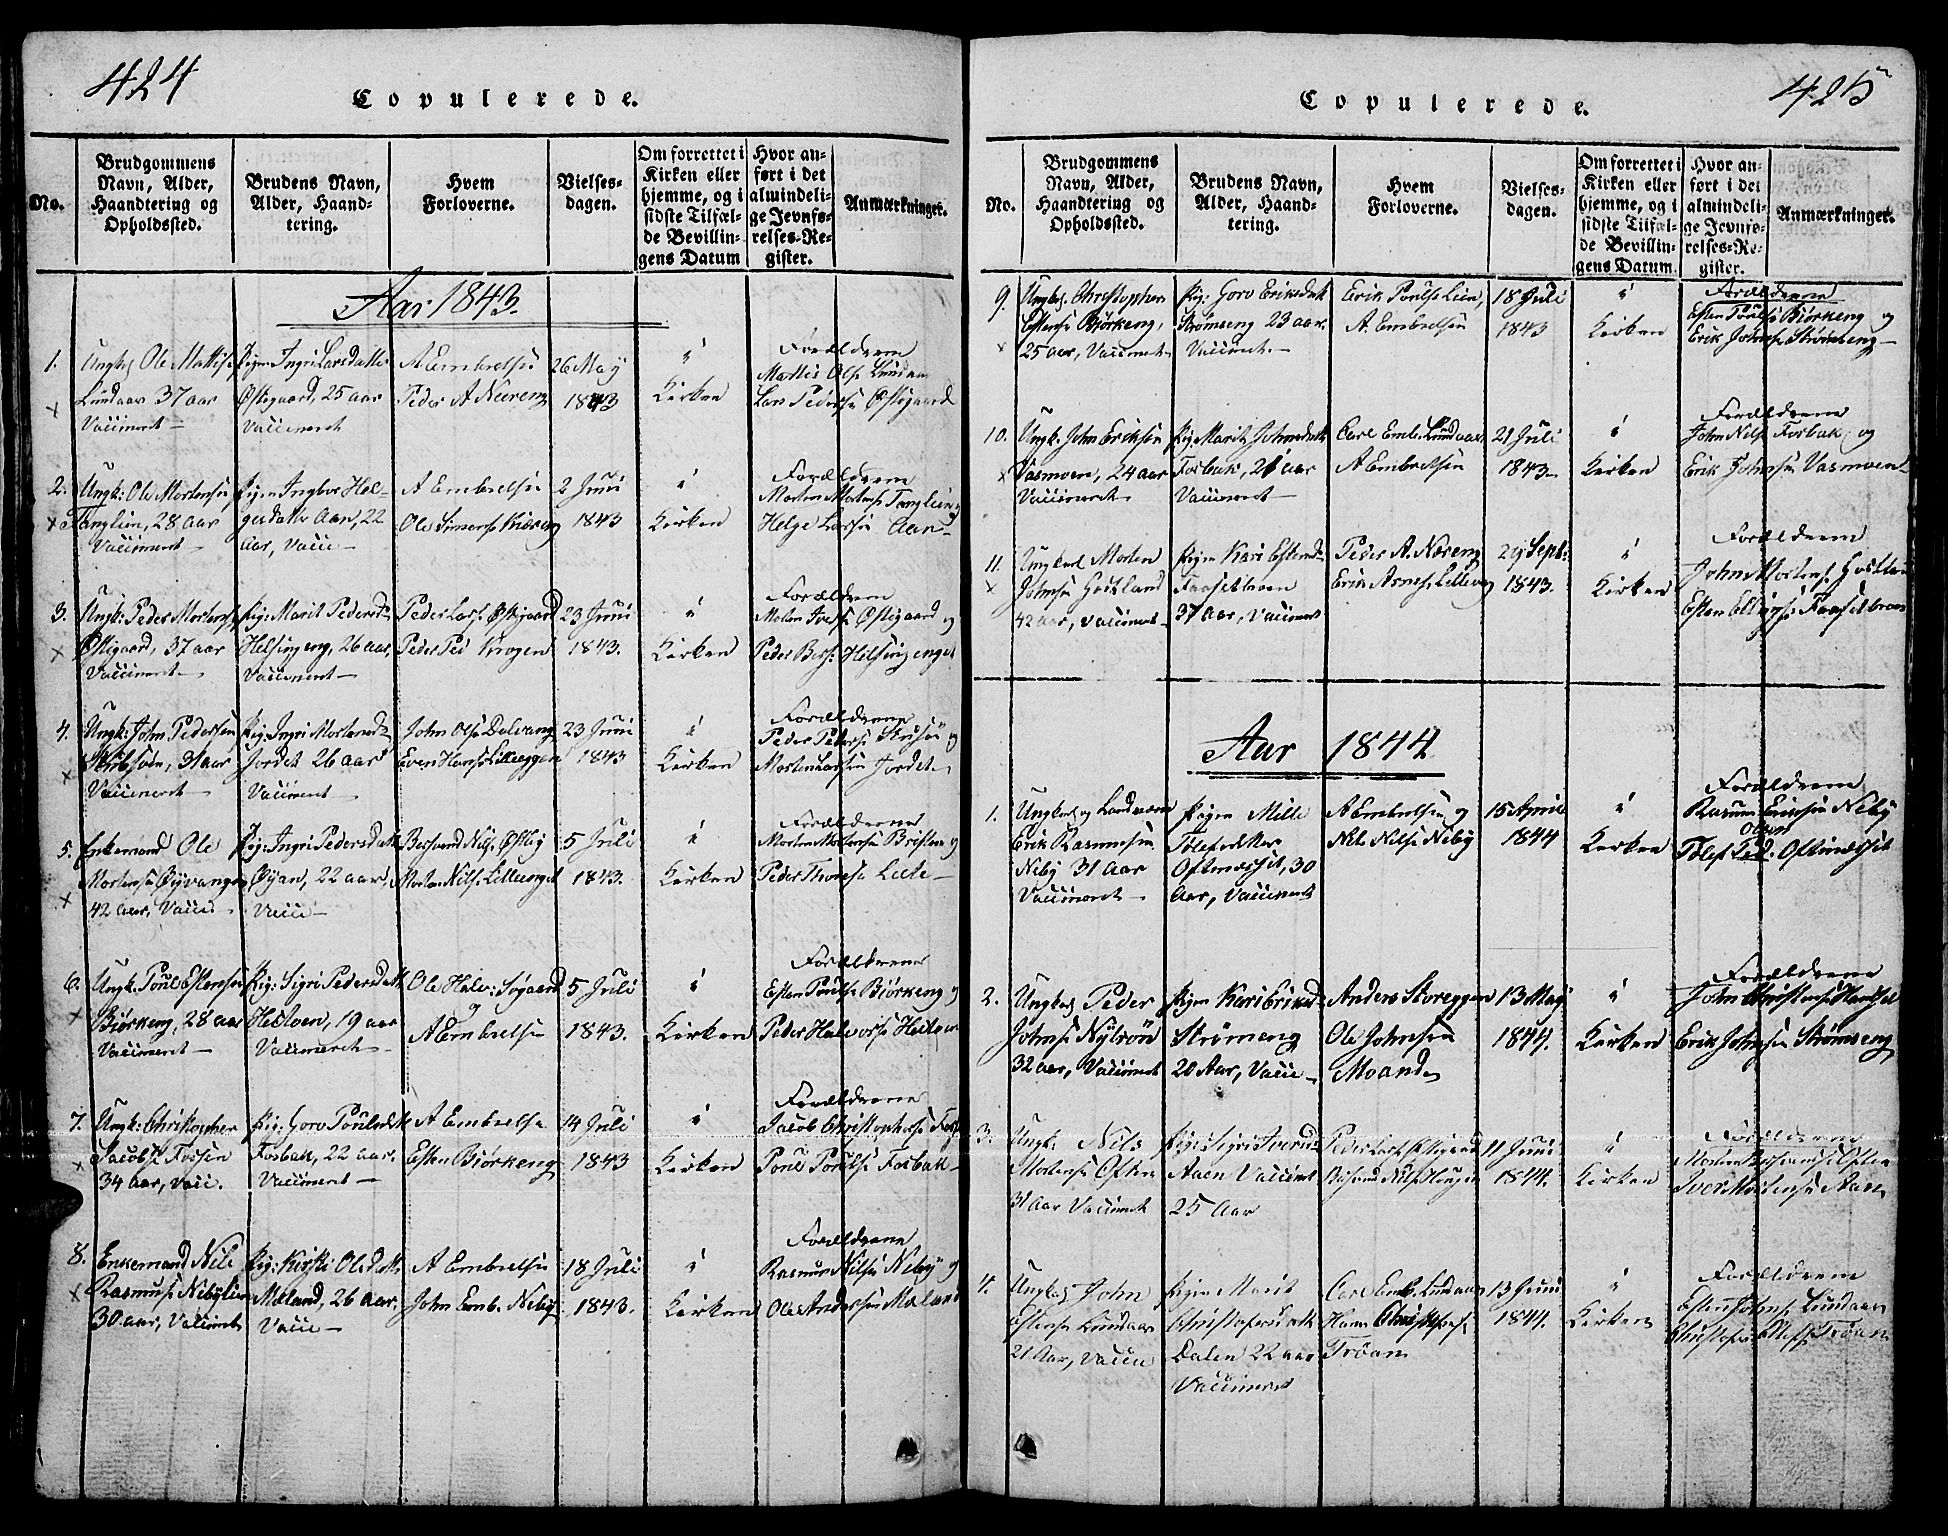 424
Copulerede.
No.
Brudgommens Navn, Alder, Haandtering og Opholdssted.
Brudens Navn, Alder, Haandtering.
Hvem Forloverne.
Vielsesdagen.
Om forrettet i Kirken eller hjemme, og i sidste Tilfælde Bevillingens Datum
Hvor anført i det almindelige Jevnførelses-Register.
Anmærkninger.
Aar 1843.
1. Ungk. Ole Mattise
Lundaas 37 aar
Vaccineret
Pigen Ingri Larsdatter
Østgaard, 25 aar
Vaccineret
A Embretsen
Peder A Næreng
26 May
1843
i
Kirken
Forældrene
Mattis Ols. Lundaas
Lars Pedersen Østgaard
2. Ungk: Ole Mortensen
Tanglien, 28 aar
Vaccineret
Pigen Ingbor Helgesdatter Aan, 22
Aar, Vacci
A Embretsen
Ole Simens.
2 Juni
1843
i
Kirken
Forældrene
Morten Mortens. Tanglien
Helge Larsen Aan
3. Ungk: Peder Mortens.
Østgaard, 37 aar
Vaccineret
Pig: Marit Pedersd.
Helsingeng, 26 aar,
Vaccineret
Peder Lars. Østgaard
Peder Ped Krogen
23 Juni
1843.
i
Kirken
Forældrene
Østgaard og
Peder Helsingenget
4. Ungk: John Pedersen
31 aar
Vaccineret
Pig: Ingri Mortensd.
Jordet 26 aar
Vaccineret
John Ols. Dalvang
Even Hans. Lilleeggen
23 Juni
1843
i
Kirken
Forældrene
Peder Peders. og
Morten Larsen Jordet
5. Enkemand Ole
Mortensen Øyvangen
42 aar, Vacci
Pig: Ingri Pedersdatt
Øyan, 22 aar,
Vacci
Bersvend Nils. Østby
Morten Nils. Lilleenget
5 Juli
1843.
i
Kirken
Forældrene
Morten Mortensen og
Peder Thomse
6. Ungk. Poul Estensen
Biørkeng, 28 aar
Vaccineret
Pig: Sigri Pedersdatt
Heitven, 19 aar
Vaccineret
Ole Halv: Søgaard
og
A Embretsen
5 Juli
1843.
i
Kirken
Forældrene
Esten Pouls. Biørkeng og
Peder Halvors.
7. Ungk: Christopher
Jacobs. Fossen
34 aar, Vacc.
Pig: Goro Poulsdatt
Fosbak, 22 aar,
Vaccineret
A Embretsen
Esten Biørkeng
14 Juli
1843
i
Kirken
Forældrene
Jacob Christophers.
Poul Pouls. Fosbak
8. Enkemand Nils
Rasmus. Nebylien
30 aar, Vaccineret
Pig: Kirsti Olsdatt
Moland, 26 aar,
Vacci
A Embretsen
John Emb. Neby
18 Juli
1843.
i
Kirken
Forældrene
Rasmus Nilsen Neby og
Ole Andersen Moland
425
Copulerede.
No.
Brudgommens Navn, Alder, Haandtering og Opholdssted.
Brudens Navn, Alder, Haandtering.
Hvem Forloverne.
Vielsesdagen.
Om forrettet i Kirken eller hjemme, og i sidste Tilfælde Bevillingens Datum.
Hvor anført i det almindelige Jevnførelses-Register.
Anmærkninger.
9. Ungk. Christopher
Estense Biørkeng,
25 aar, Vaccineret
Pig: Goro Eriksdatt
Strømeng 23 aar.
Vaccineret
Erik Pouls. Lien,
A. Embretsen
18 Juli
1843
i
Kirken
Forældrene
Esten Pouls. Biørkeng og
Erik Johns. Strømeng
10. Ungk. John Eriksen
Vasmoen, 24 aar
Vaccineret
Pig: Marit Johnsdatt
Fosbak, 21 aar
Vaccineret
Carl Emb. Lundaas
A Embretsen
21 Juli
1843
i
Kirken
Forældrene
John Nils. Fosbak og
Erik Johnsen Vasmoen
11. Ungkarl Morten
Johnsen
42 aar, Vaccineret
Pigen Kari Estensd.
37 aar, Vaccineret
Peder A. Næreng
Erik Arnes.
29 Sept:
1843.
i
Kirken
Forældrene
John Mortens.
Esten
Aar 1844
1. Ungkarl og Landværn
Erik Rasmusen
Neby 31 aar
Vaccineret
Pigen Mille
Tolefsdatter
30
Aar, Vaccineret
A Embretsen og
Nils Nilse Neby
15 April
1844
i
Kirken
Forældrene
Rasmus Ericsen Neby
Olsen
Tolef Ped.
2. Ungkarl Peder
Johns. Nytrøn
32 aar, Vaccineret
Pigen Kari Eriksd.
Strømeng
20 Aar, Vacci
Anders Storeggen
Ole Johnsen
Moand
13 May
1844.
i
Kirken
Forældrene
John Christense
Erik Johnsen Strømseng
3. Ungk. Nils
Mortens.
31 Aar Vaccineret
Pige Sigri Iversd.
Aaen Vaccineret
25 Aar
Peder Lars. Østgaard
Bersvend Nils. Haugen
11 Juni
1844.
i
Kirken
Forældrene
Morten
Iver Mortensen Aaen
4. Ungkarl John
Estense Lundaas
21 Aar, Vacci
Pigen Marit
Christofersdatt
Dalen 22 aar
Vaccineret
Carl Emb. Lundaas
Hans Christofers.
Trøan
13 Juni
1844.
i
Kirken
Forældrene
Esten Johns. Lundaas
Christofer Trøan